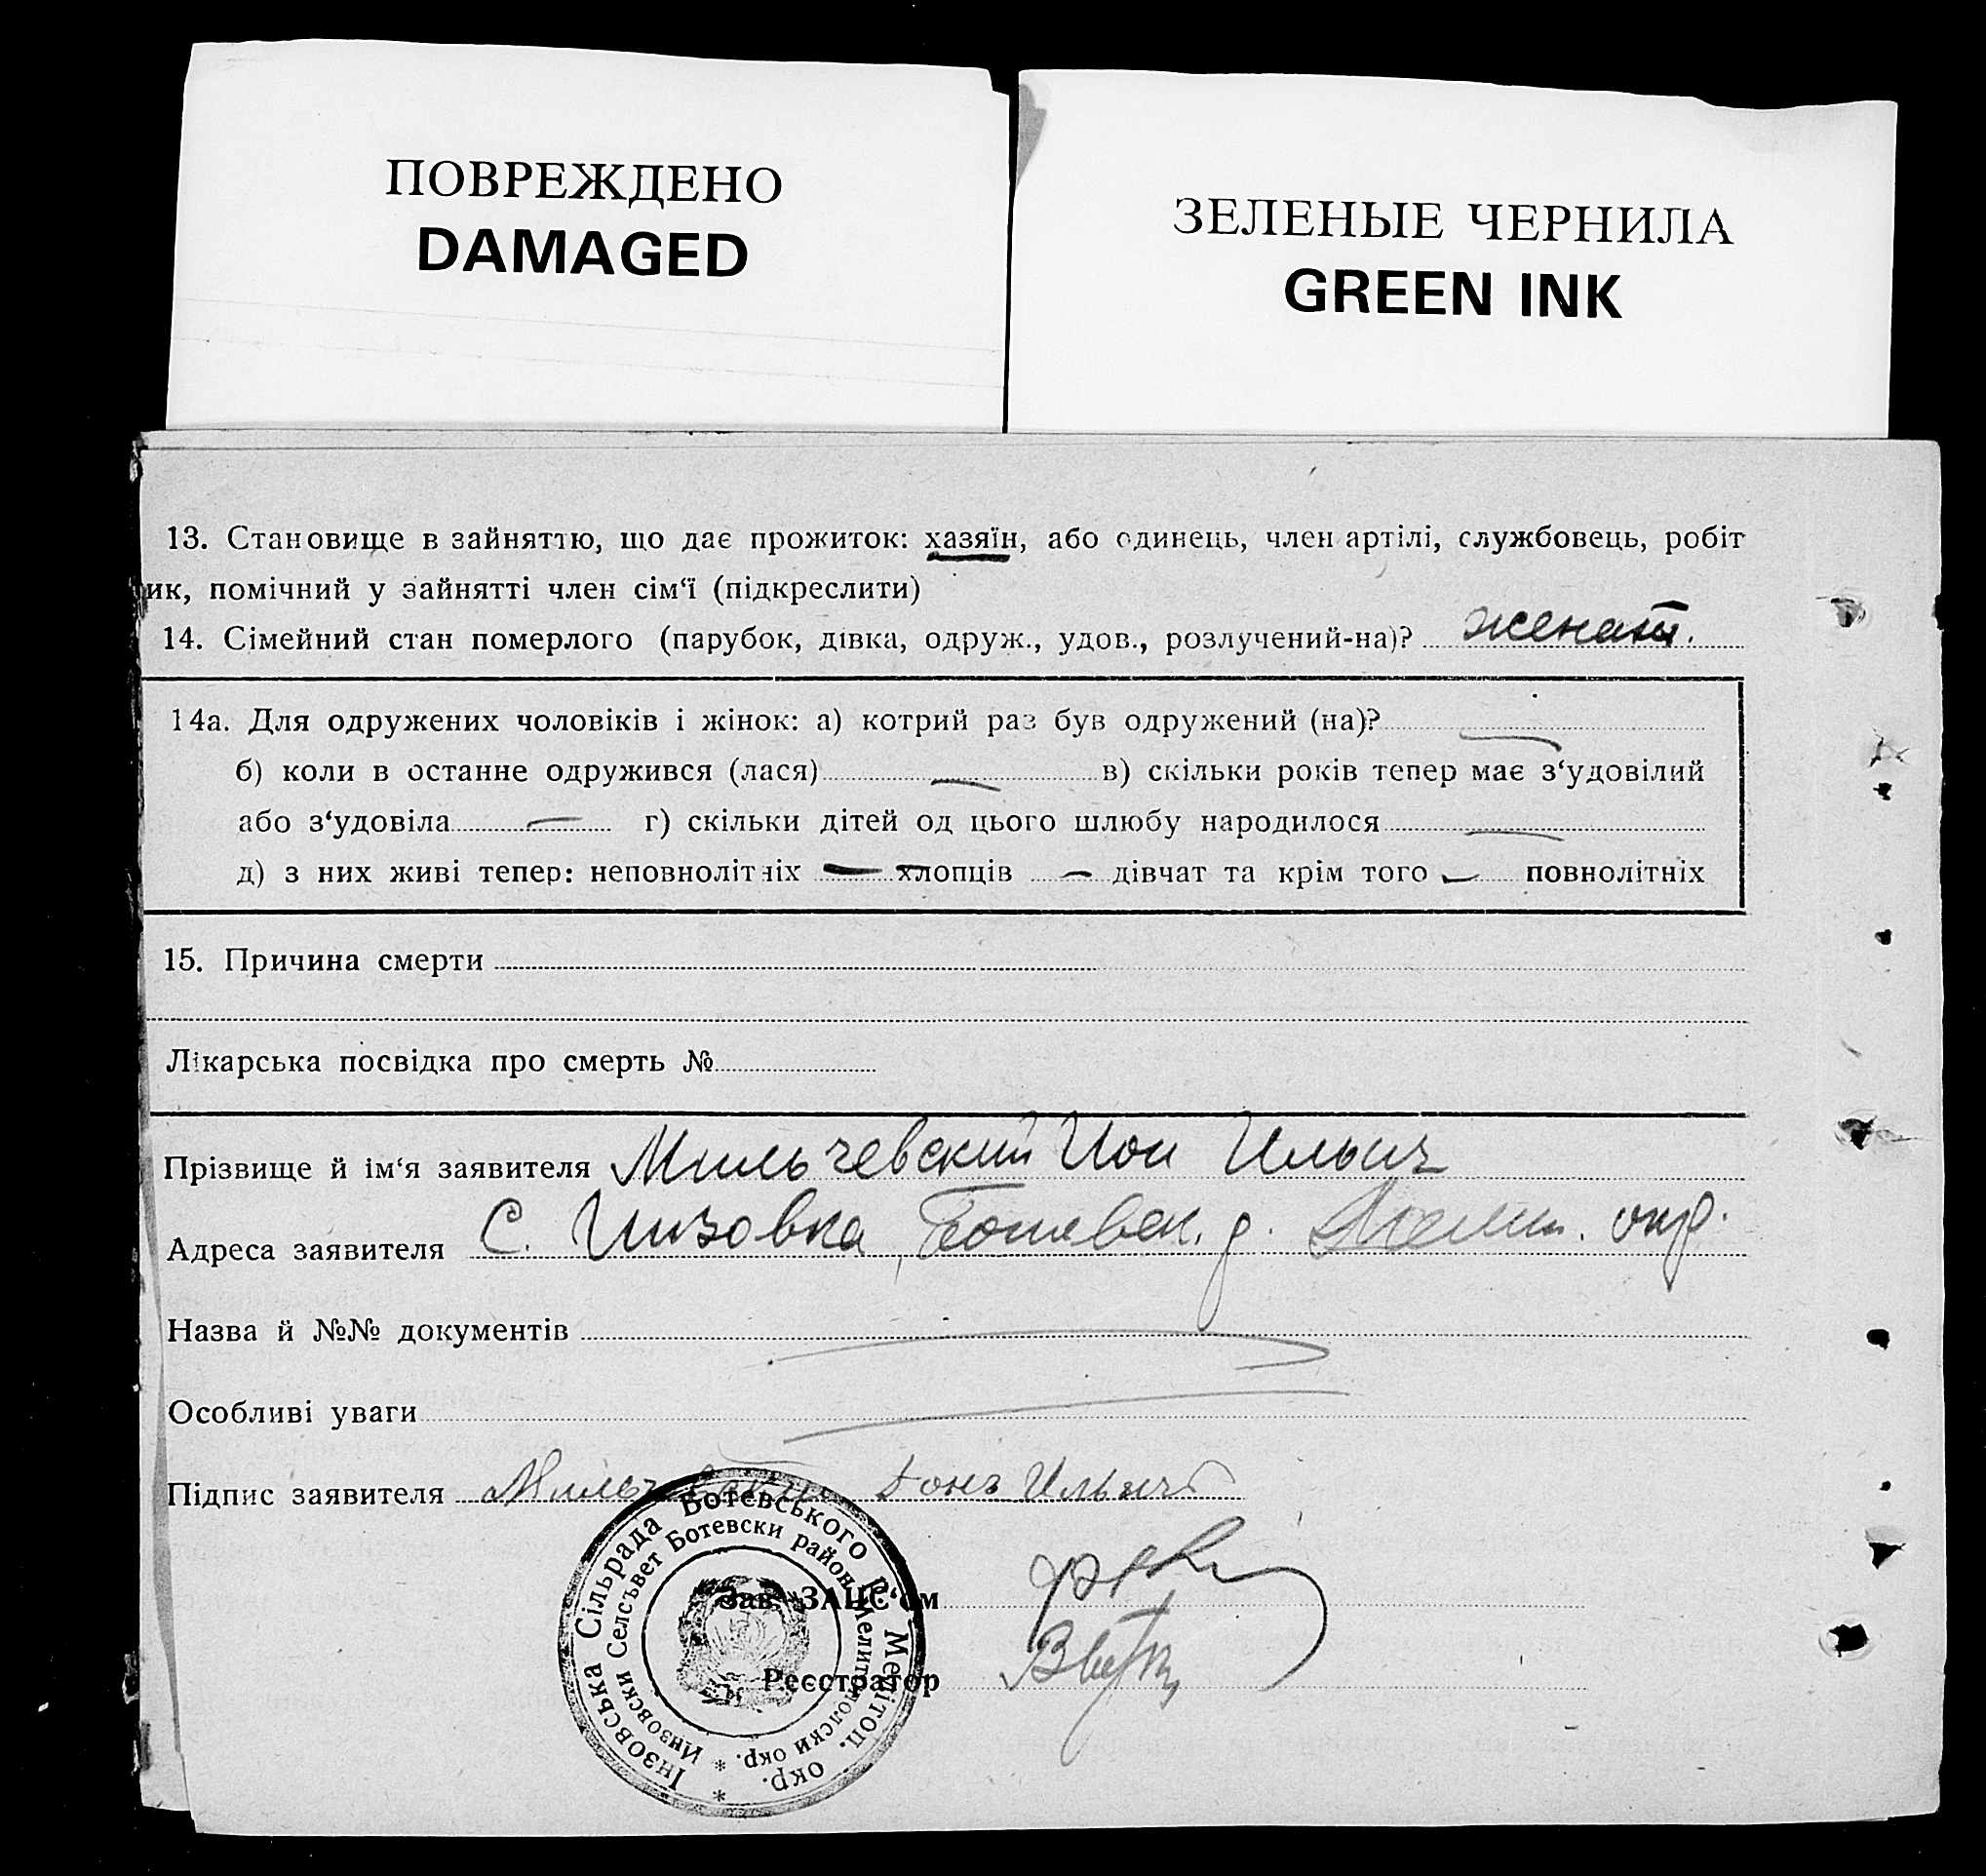 ПОВРЕЖДЕНО
DAMAGED
ЗЕЛЕНЫЕ ЧЕРНИЛА
GREEN INK
13. Становище в зайняттю, що дає прожиток: хазяїн, або одинець, член артілі, службовець, робіт
ик, помічний у зайнятті член сім‘ї (підкреслити)
14. Сімейний стан померлого (парубок, дівка, одруж., удов., розлучений-на)? женат.
14а. Для одружених чоловіків і жінок: а) котрий раз був одружений (на)? —
б) коли в останне одружився (лася) — в) скільки років тепер має з‘удовілий
або з‘удовіла — г) скільки дітей од цього шлюбу народилося —
д) з них живі тепер: неповнолітніх — хлопців — дівчат та крім того — повнолітніх
15. Причина смерти
Лікарська посвідка про смерть №
Прізвище й ім‘я заявителя Мильчевский Ион Ильич
Адреса заявителя С. Инзовка, Ботевск. р. Мелит. окр.
Назва й №№ документів
Особливі уваги
Підпис заявителя Мильчевский Ионъ Ильичъ
Інзовська Сільрада Ботевського Р. Мелітоп. окр. *
Инзовски Селсъвет Ботевски район Мелитополски окр. *
Зав. ЗАЦС‘ом
Реєстратор